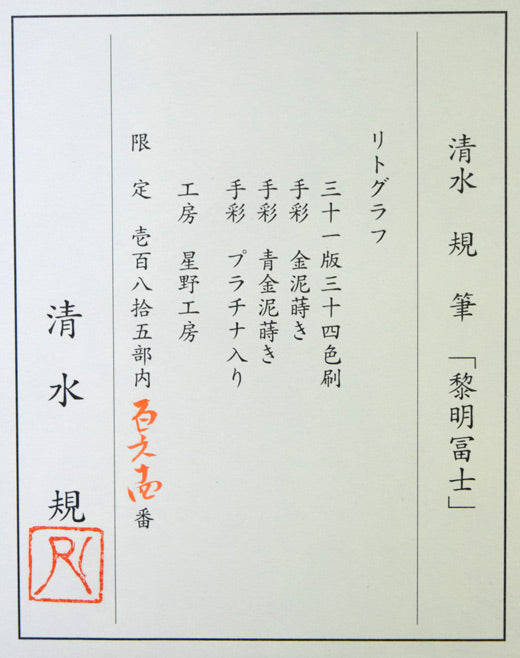 清水 規 筆 「黎明冨士」
リトグラフ
三十一版三十四色刷
手彩 金泥蒔き
手彩 青金泥蒔き
手彩 プラチナ入り
工房 星野工房
限定 壱百八拾五部内 百六十四番
清水 規